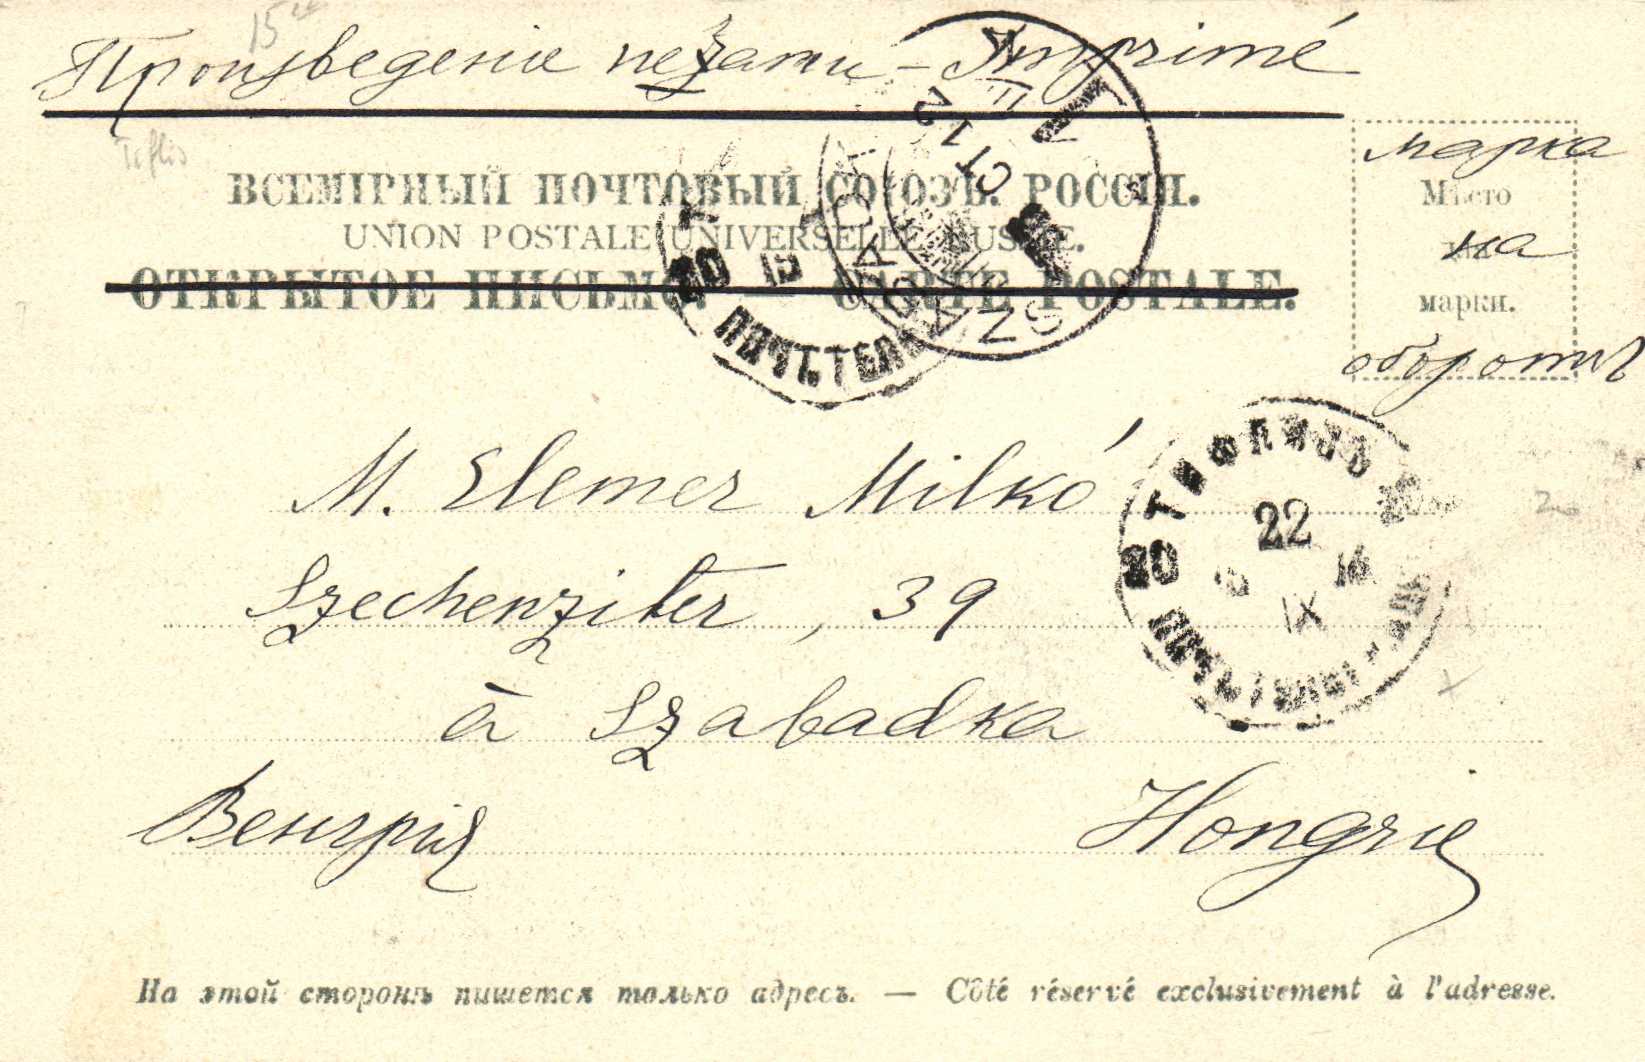 Произведенiе печати - Imprimé
Tiflis
ВСЕМIРНЫЙ ПОЧТОВЫЙ СОЮЗЪ. РОССIЯ.
UNION POSTALE UNIVERSELLE. RUSSIE.
ОТКРЫТОЕ ПИСЬМО. CARTE POSTALE.
марка
Мѣсто
на
марки.
оборотѣ
SZABADKA
ТИФЛИСЪ
22
IX
M. Elemer Milkó
Szechenziter, 39
à Szabadka
Венгрiя Hongrie
На этой сторонѣ пишется только адресъ. — Côté réservé exclusivement à l'adresse.